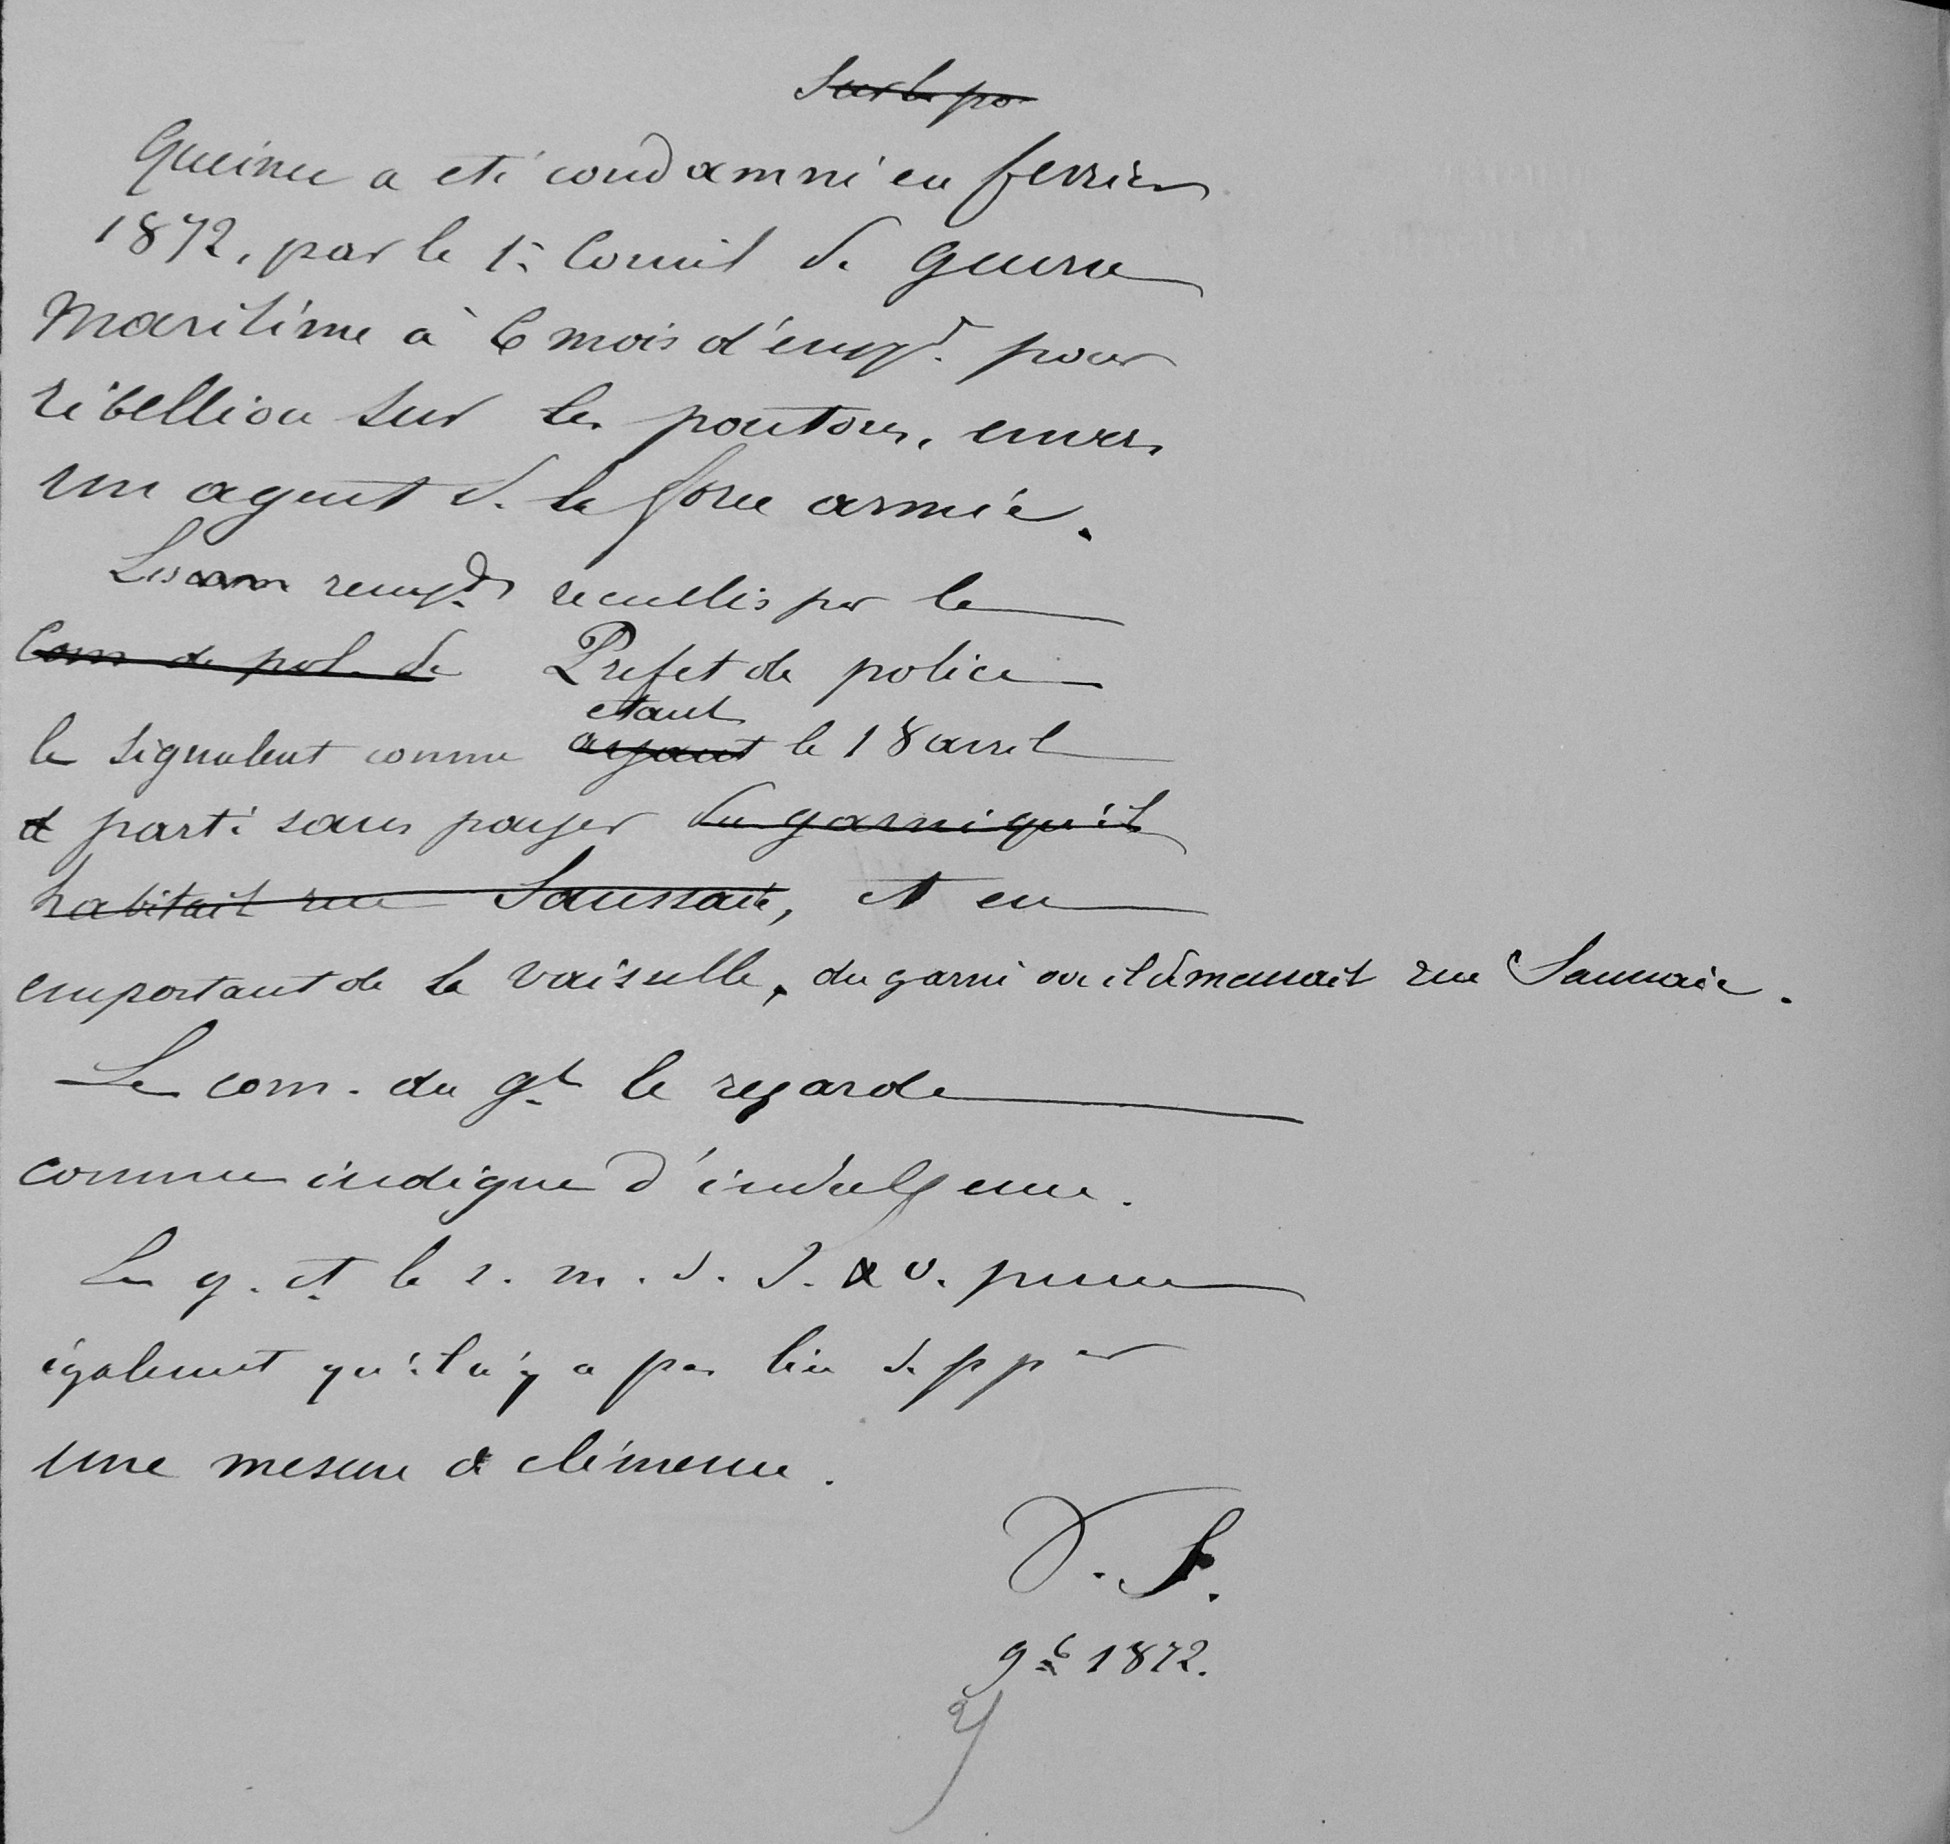 Sur les po
Queinec a eté condamné en fevrier
1872, par le 1er Conseil de guerre
Maritime à 6 mois d'empt. pour
rébellion sur les pontons, envers
un agent de la force armée.
Les rensgts recueillis par le
Com de pol. de Prefet de police
etant
le signalent comme ayant le 18 avril
parti sans payer du garni qu'il
habitait rue Saussaie, et en
emportant de la vaisselle, du garni ou il demeurait rue Saussaie.
Le com. du gt le regarde
comme indigne d'indulgence.
Le g. et le r. m. s. d. v. pense
également qu'il n'y a pas lieu de pper
une mesure de clémence.
9b 1872.